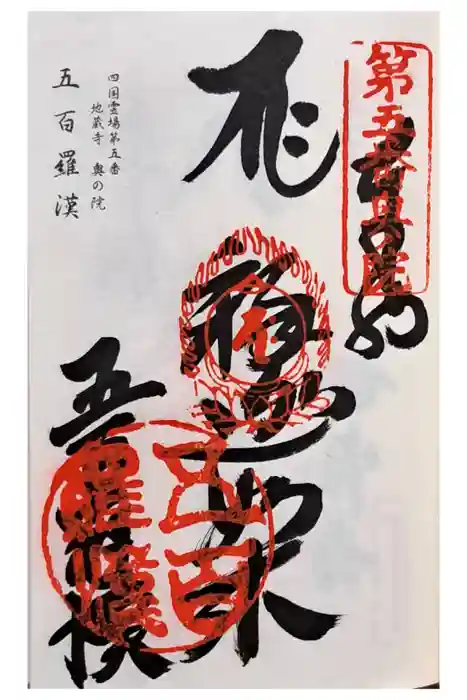 第五番奥の院
奉納
釈迦如来
五百羅漢
五百羅漢
四国霊場第五番
地蔵寺 奥の院
五百羅漢